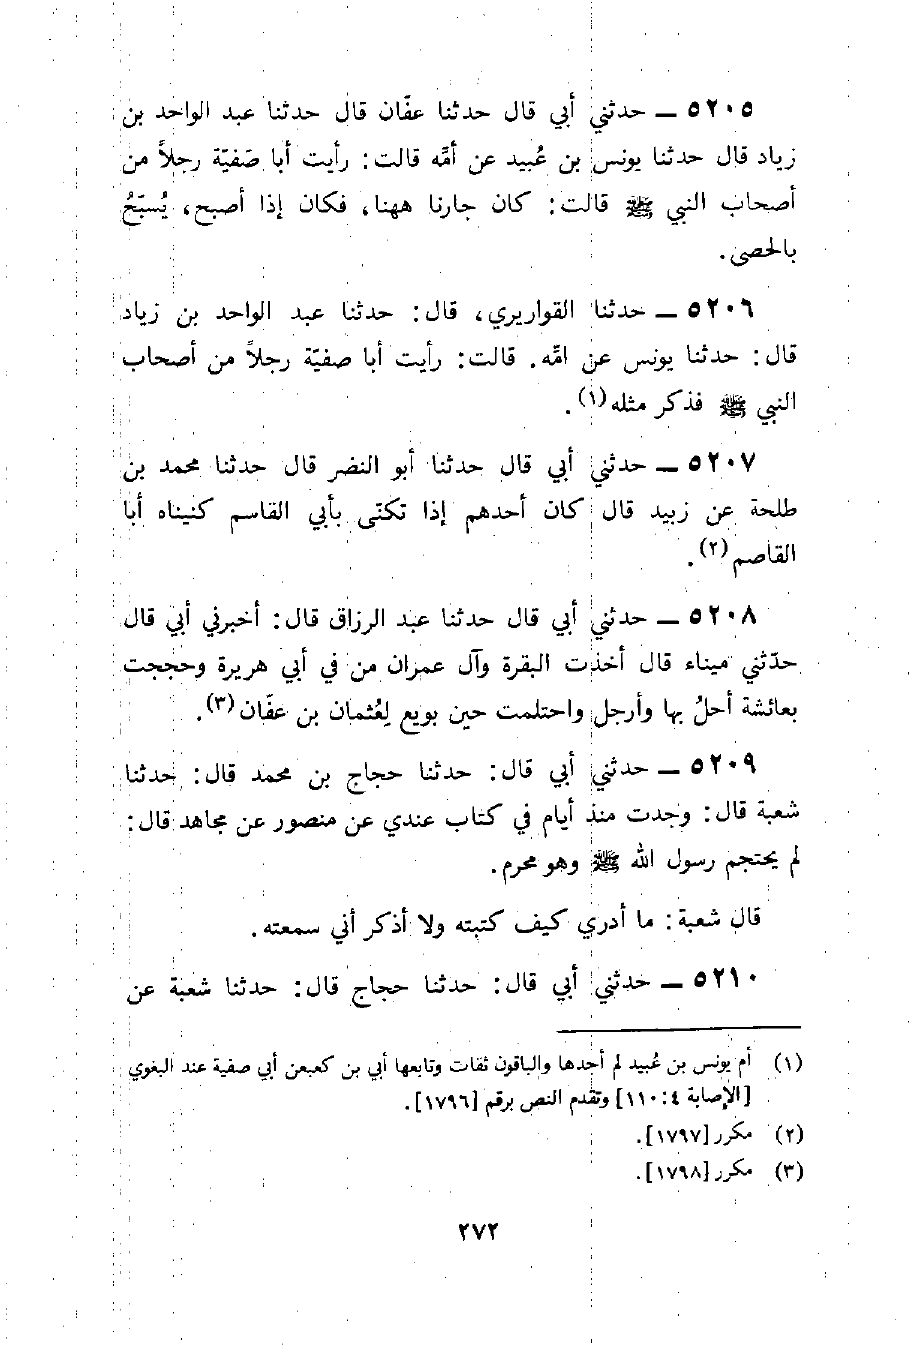 ٥٢٠٥ ـ حدثني أبي قال حدثنا عفّان قال حدثنا عبد الواحد بن
زياد قال حدثنا يونس بن عُبيد عن أمّه قالت: رأيت أبا صَفيّة رجلاً من
أصحاب النبي ﷺ قالت: كان جارنا ههنا، فكان إذا أصبح، يُسبّحُ
بالحصى.
٥٢٠٦ ـ حدثنا القواريري، قال: حدثنا عبد الواحد بن زياد
قال: حدثنا يونس عن امّه. قالت: رأيت أبا صفيّة رجلاً من أصحاب
النبي ﷺ فذكر مثله(١).
٥٢٠٧ ـ حدثني أبي قال حدثنا أبو النضر قال حدثنا محمد بن
طلحة عن زبيد قال كان أحدهم إذا تكنّى بأبي القاسم كنيناه أبا
القاصم(٢).
٥٢٠٨ ـ حدثني أبي قال حدثنا عبد الرزاق قال: أخبرني أبي قال
حدّثني ميناء قال أخذت البقرة وآل عمران من في أبي هريرة وحججت
بعائشة أحلُ بها وأرجل واحتلمت حين بويع لِعُثمان بن عفّان(٣).
٥٢٠٩ ـ حدثني أبي قال: حدثنا حجاج بن محمد قال: حدثنا
شعبة قال: وجدت منذ أيام في كتاب عندي عن منصور عن مجاهد قال:
لم يحتجم رسول الله ﷺ وهو محرم.
قال شعبة: ما أدري كيف كتبته ولا أذكر أني سمعته.
٥٢١٠ ـ حدثني أبي قال: حدثنا حجاج قال: حدثنا شعبة عن
(١) أم يونس بن عُبيد لم أجدها والباقون ثقات وتابعها أبي بن كعبعن أبي صفية عند البغوي
[الإصابة ٤:١١٠] وتقدم النص برقم [١٧٩٦].
(٢) مكرر [١٧٩٧].
(٣) مكرر [١٧٩٨].
٢٧٢